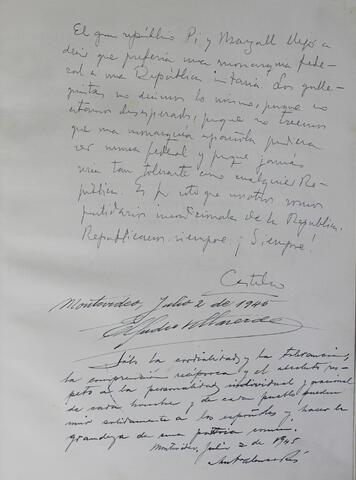 El gran repúblico Pi y Margall llegó a
decir que prefería una monarquía fede-
ral a una República unitaria. Los galle-
guistas no decimos lo mismo, porque no
estamos desesperados, porque no creemos
que una monarquía española pudiera
ser nunca federal y porque jamás
sería tan tolerante como cualquier Re-
pública. Es por esto que nosotros somos
partidarios incondicionales de la República.
Republicanos siempre. ¡Siempre!
Castelao
Montevideo, Julio 2 de 1945
Elpidio Villaverde
Sólo la cordialidad y la tolerancia,
la comprensión recíproca y el absoluto res-
peto a la personalidad individual y nacional
de cada hombre y de cada pueblo pueden
unir solidamente a los españoles y hacer la
grandeza de una patria común.
Montevideo, Julio 2 de 1945
Ant. Alonso Ríos